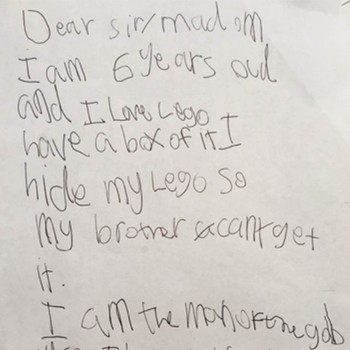 Dear sir/madam
I am 6 years oud
and I Love Lego
have a box of it I
hide my Lego so
my brother cant get
it.
I am the man for the gob